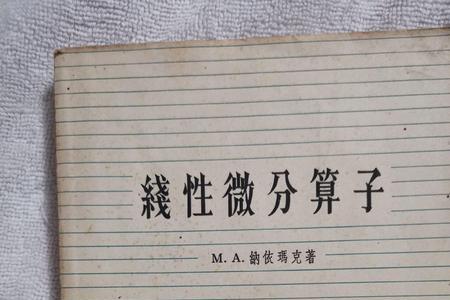 綫性微分算子
M. A. 納依瑪克著